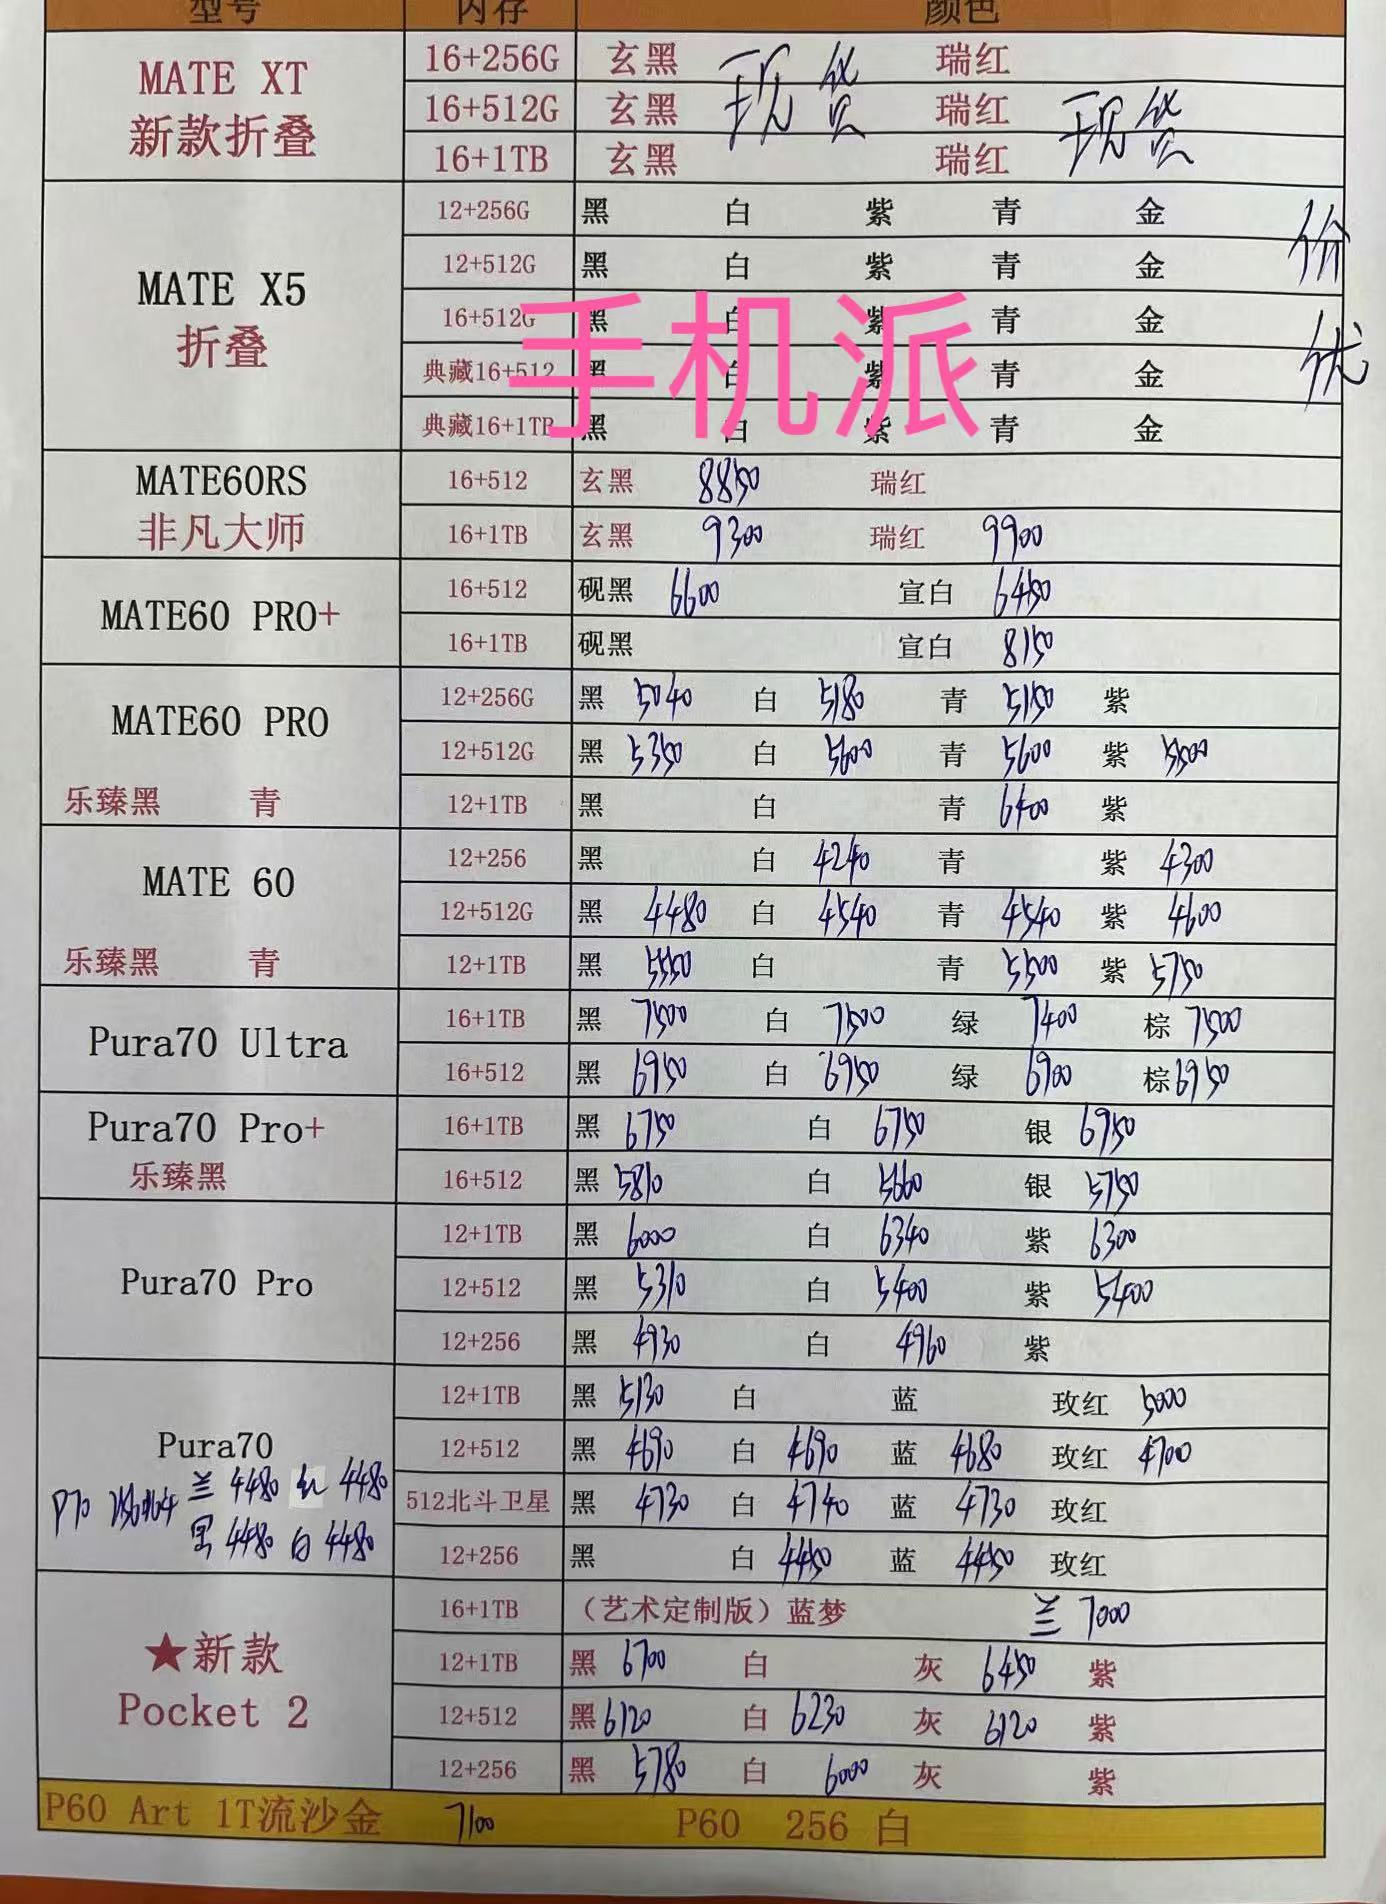 型号 内存 颜色
MATE XT 新款折叠
16+256G 玄黑 现货 瑞红
16+512G 玄黑 瑞红 现货
16+1TB 玄黑 瑞红
MATE X5 折叠
12+256G 黑 白 紫 青 金 价
12+512G 黑 白 紫 青 金
16+512G 黑 白 紫 青 金 优
手机派
典藏16+512 黑 白 紫 青 金
典藏16+1TB 黑 白 紫 青 金
MATE60RS 非凡大师
16+512 玄黑 8850 瑞红
16+1TB 玄黑 9300 瑞红 9900
MATE60 PRO+
16+512 砚黑 6600 宣白 6450
16+1TB 砚黑 宣白 8150
MATE60 PRO
乐臻黑 青
12+256G 黑 5040 白 5180 青 5150 紫
12+512G 黑 5350 白 5600 青 5600 紫 5500
12+1TB 黑 白 青 6400 紫
MATE 60
乐臻黑 青
12+256 黑 白 4240 青 紫 4300
12+512G 黑 4480 白 4540 青 4540 紫 4600
12+1TB 黑 5550 白 青 5500 紫 5750
Pura70 Ultra
16+1TB 黑 7500 白 7500 绿 7400 棕 7500
16+512 黑 6950 白 6950 绿 6900 棕 6950
Pura70 Pro+
乐臻黑
16+1TB 黑 6750 白 6750 银 6950
16+512 黑 5810 白 5660 银 5750
Pura70 Pro
12+1TB 黑 6000 白 6340 紫 6300
12+512 黑 5310 白 5400 紫 5400
12+256 黑 4930 白 4960 紫
Pura70
P70 兰 4480 红 4480
黑 4480 白 4480
12+1TB 黑 5130 白 蓝 玫红 5000
12+512 黑 4690 白 4690 蓝 4680 玫红 4700
512北斗卫星 黑 4730 白 4740 蓝 4730 玫红
12+256 黑 白 4450 蓝 4450 玫红
★新款
Pocket 2
16+1TB （艺术定制版）蓝梦 兰 7000
12+1TB 黑 6700 白 灰 6450 紫
12+512 黑 6120 白 6230 灰 6120 紫
12+256 黑 5780 白 6000 灰 紫
P60 Art 1T流沙金 7100 P60 256 白